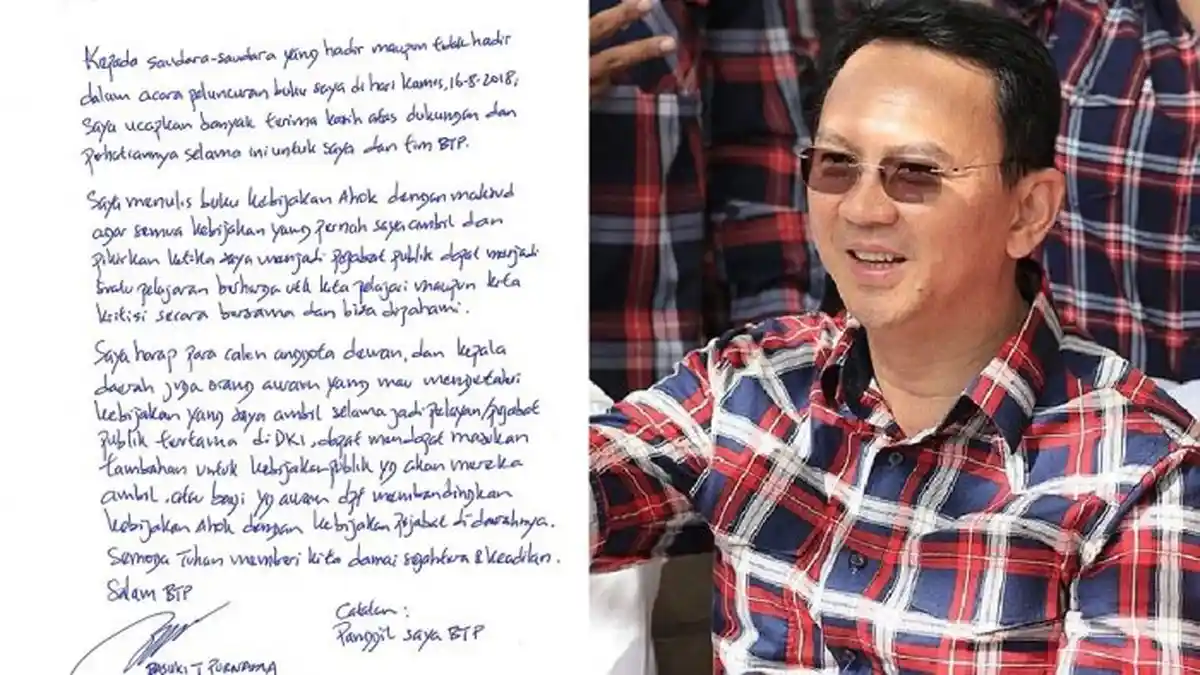 Kepada saudara-saudara yang hadir maupun tidak hadir
dalam acara peluncuran buku saya di hari Kamis, 16-8-2018,
Saya ucapkan banyak terima kasih atas dukungan dan
perhatiannya selama ini untuk saya dan tim BTP.
Saya menulis buku kebijakan Ahok dengan maksud
agar semua kebijakan yang pernah saya ambil dan
pikirkan ketika saya menjadi pejabat publik dapat menjadi
suatu pelajaran berharga utk kita pelajari maupun kita
kritisi secara bersama dan bisa dipahami.
Saya harap para calon anggota dewan, dan kepala
daerah juga orang awam yang mau mengetahui
kebijakan yang saya ambil selama jadi pelayan/pejabat
publik terutama di DKI, dapat mendapat masukan
tambahan untuk kebijakan publik yg akan mereka
ambil, atau bagi yg awam dpt membandingkan
kebijakan Ahok dengan kebijakan pejabat di daerahnya.
Semoga Tuhan memberi kita damai sejahtera & keadilan.
Salam BTP
Catatan :
Panggil saya BTP
BASUKI T PURNAMA